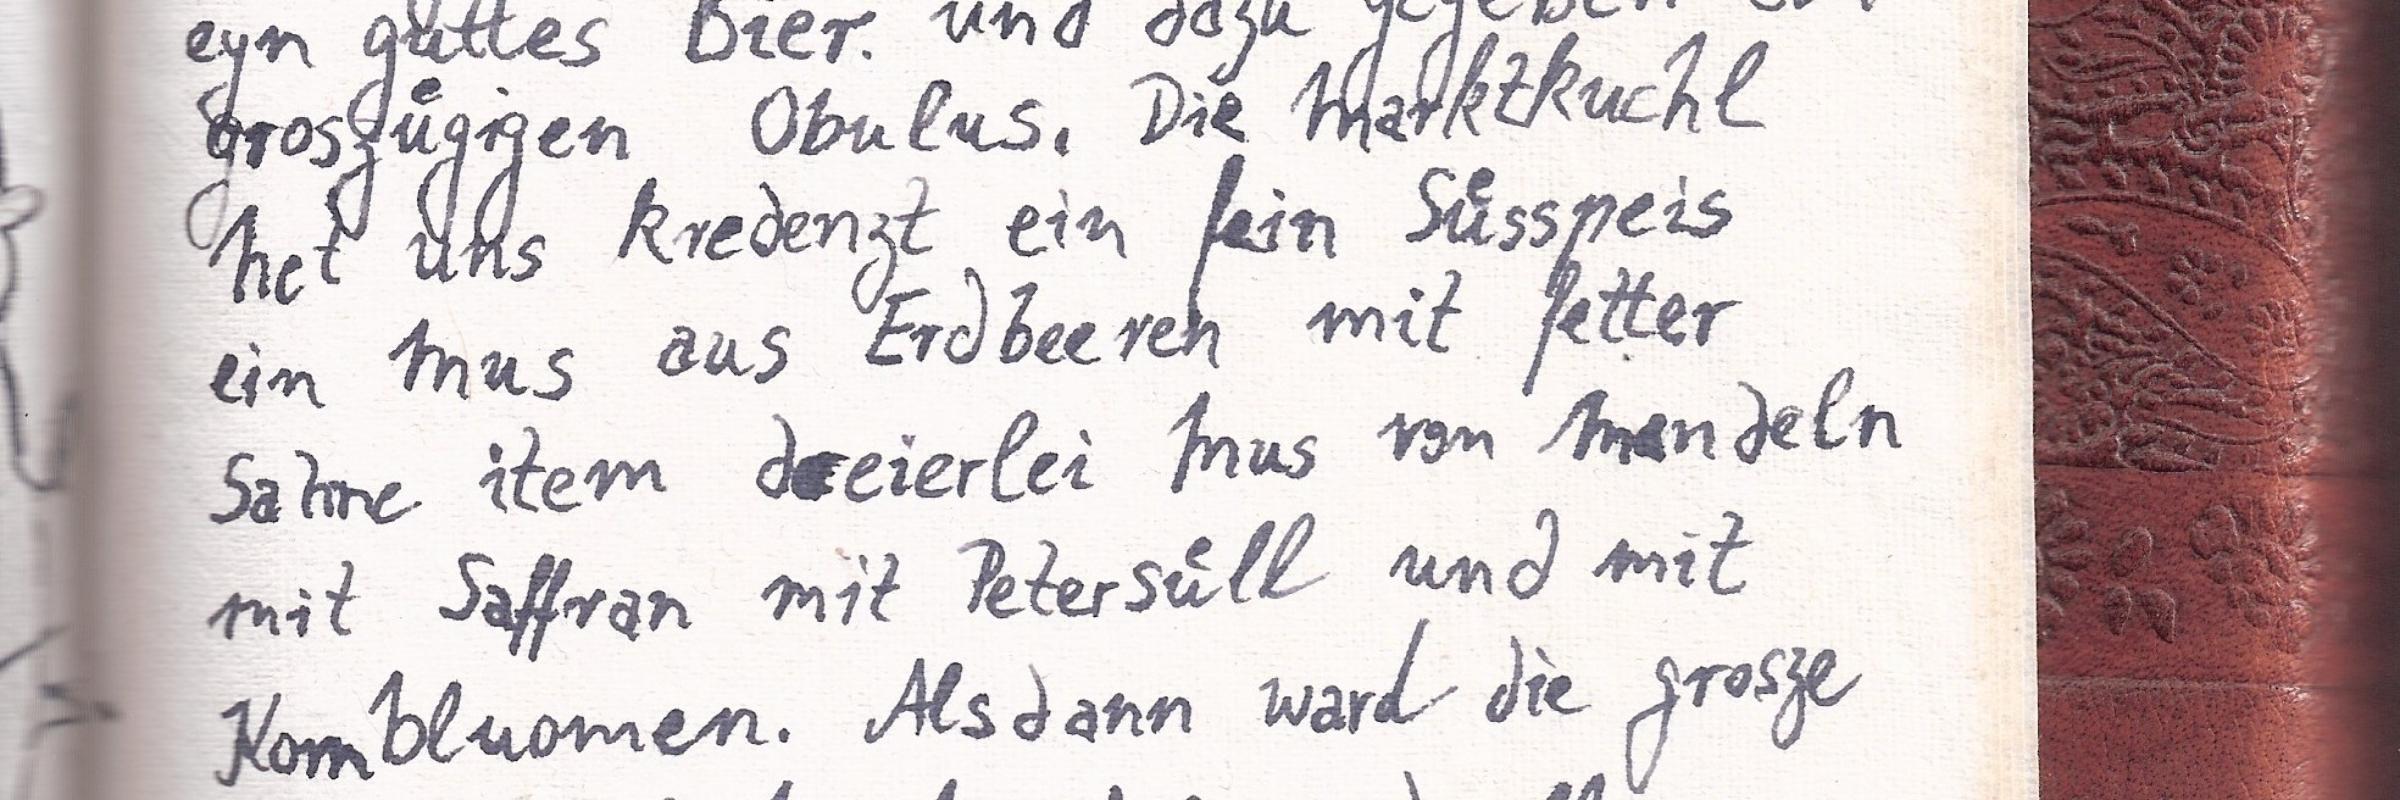 eyn guͤttes Bier. und dazu gegeben ein
groszuͤgigen Obulus. Die Marktkuchl
het uns kredenzt ein fein Suͤsspeis
ein Mus aus Erdbeeren mit fetter
Sahne item dreierlei Mus von Mandeln
mit Saffran mit Petersuͤll und mit
Kornbluomen. Alsdann ward die grosze